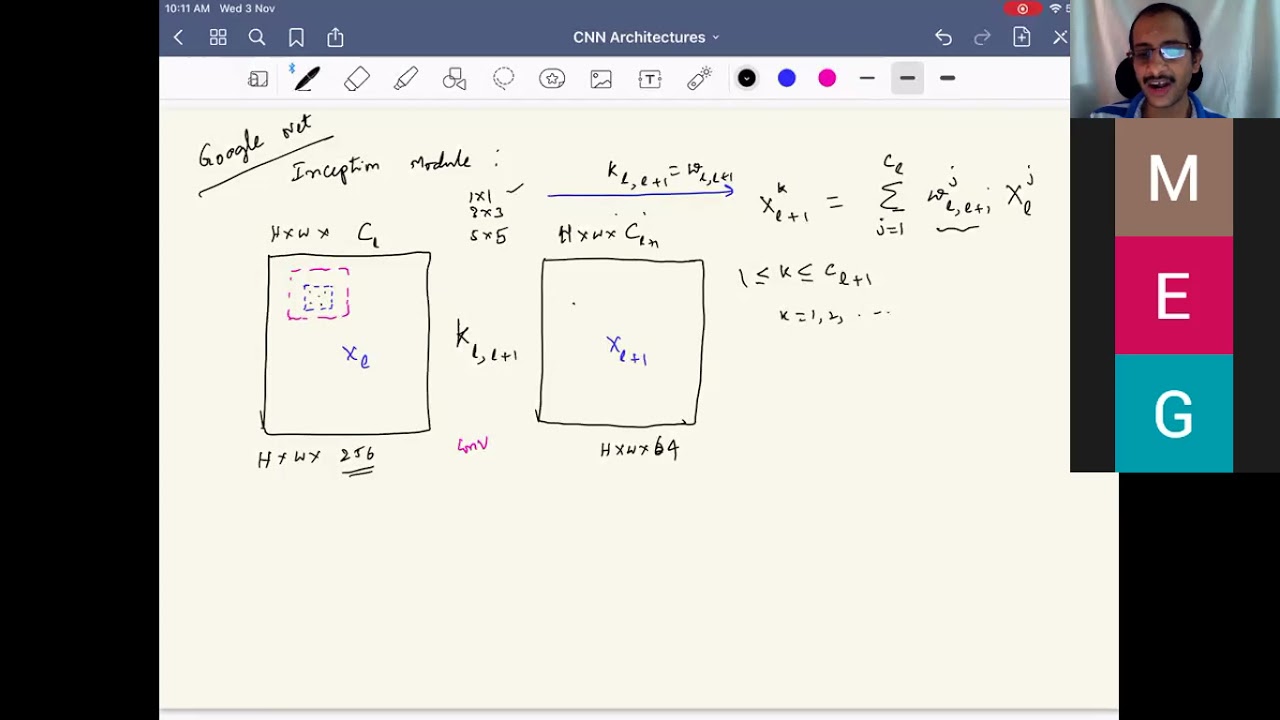 10:11 AM Wed 3 Nov
CNN Architectures
Google Net
Inception Module :
1x1 ✓
3x3
5x5
K_{l,l+1} = w_{l,l+1}
X_{l+1}^k = Σ_{j=1}^{C_l} w_{l,l+1}^j X_l^j
H×W× C_l
H×W× C_{l+1}
1 ≤ k ≤ C_{l+1}
k=1,2, ....
X_l
K_{l,l+1}
X_{l+1}
H×W× 256
Conv
H×W×64
M
E
G